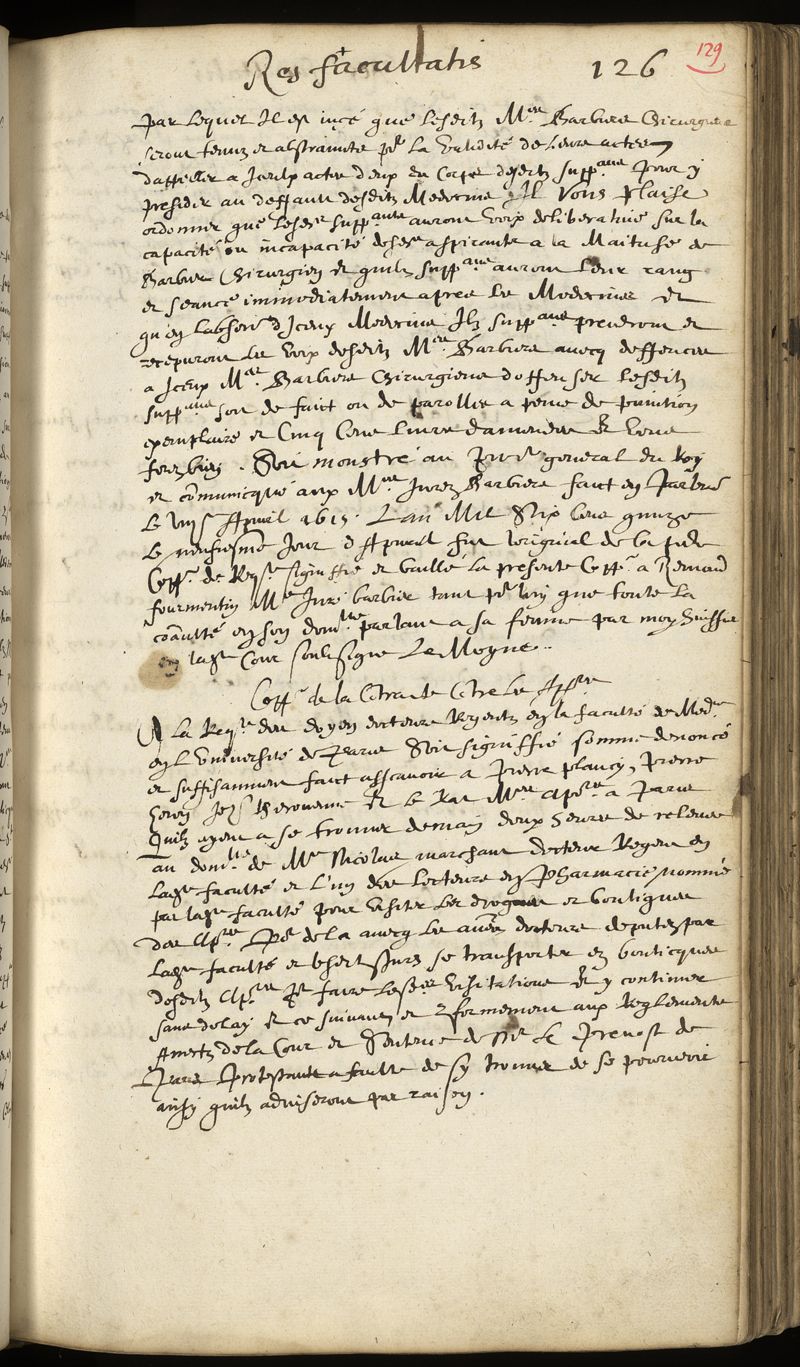 Res facultatis 126 129
par lequel Il est jugé que lesditz M.es Barbiers Chirurgiens
seront tenuz et abstrainctz p.r la validité de leurs actes
d'appeller a Iceulx actes deux du Corps desditz supp.ans pour y
presider au deffault desditz Medecins Il vous plaise
ordonner que lesd.s supp.ans auront voix deliberative sur la
capacité ou incapacité desd.s aspirants a la Maitrise de
Barbier Chirurgien et quilz supp.ans auront leur rang
et seance immediatement apres les Medecins et
qu'en labsence d'Iceux Medecins Ilz supp.ans prendront et
recepvront les voix desditz M.es Barbiers avecq deffences
a Iceux M.es Barbiers Chirurgiens d'offenser lesditz
supp.ans soit de faict ou de parolles a peine de punition
exemplaire et Cinq Cens livres damendes Et vous
ferez bien. Soit monstré au Proc.r general du Roy
et communicqué aux M.es Jurez Barbiers faict en Parlem.t
le Apvril 1615. L'an Mil Six Cens quinze
le neufiesme Jour d'Apvril fut loriginal de la p.nte
Copp.e de Req.te signiffié et baillé la presente Copp.e a Renaud
fourmentin M.e Juré barbier tant p.r luy que toute la
co.aulté en son dom.lle parlant a sa femme par moy huissier
en lad. Cour soubsigné Le Moyne..
Copp.e de la Contre les Ap.res
A la Req.te des doyen docteurs Regents en la faculté de Med.e
en L'université de Paris Soit signiffié sommé denoncé
et suffisamment faict assçavoir a Pierre plancy, Pierre
Jeh. therouenne Et M.es apo.res a Paris
Quilz ayent a se trouver demain deux heures de relevée
au dom.lle de M.e Nicolas marchant docteur Regent en
lad. faculté et L'un des docteurs en Pharmacie nommé
par lad. faculté pour visiter les drogues et boutiques
des Ap.res p.r de la avecq les au.es docteurs deputez par
lad. faculté et Jurez se transporter es bouticques
desditz Ap.res p.r faire lesd.es visitations Et y continuer
sans delay Et ce suivant et conformement aux Reglements
Arrestz de la Cour et Sentence de Mr le Prevost de
Paris Protestant a faulte de sy trouver de se pourveoir
ainsy quilz adviseront par raison.